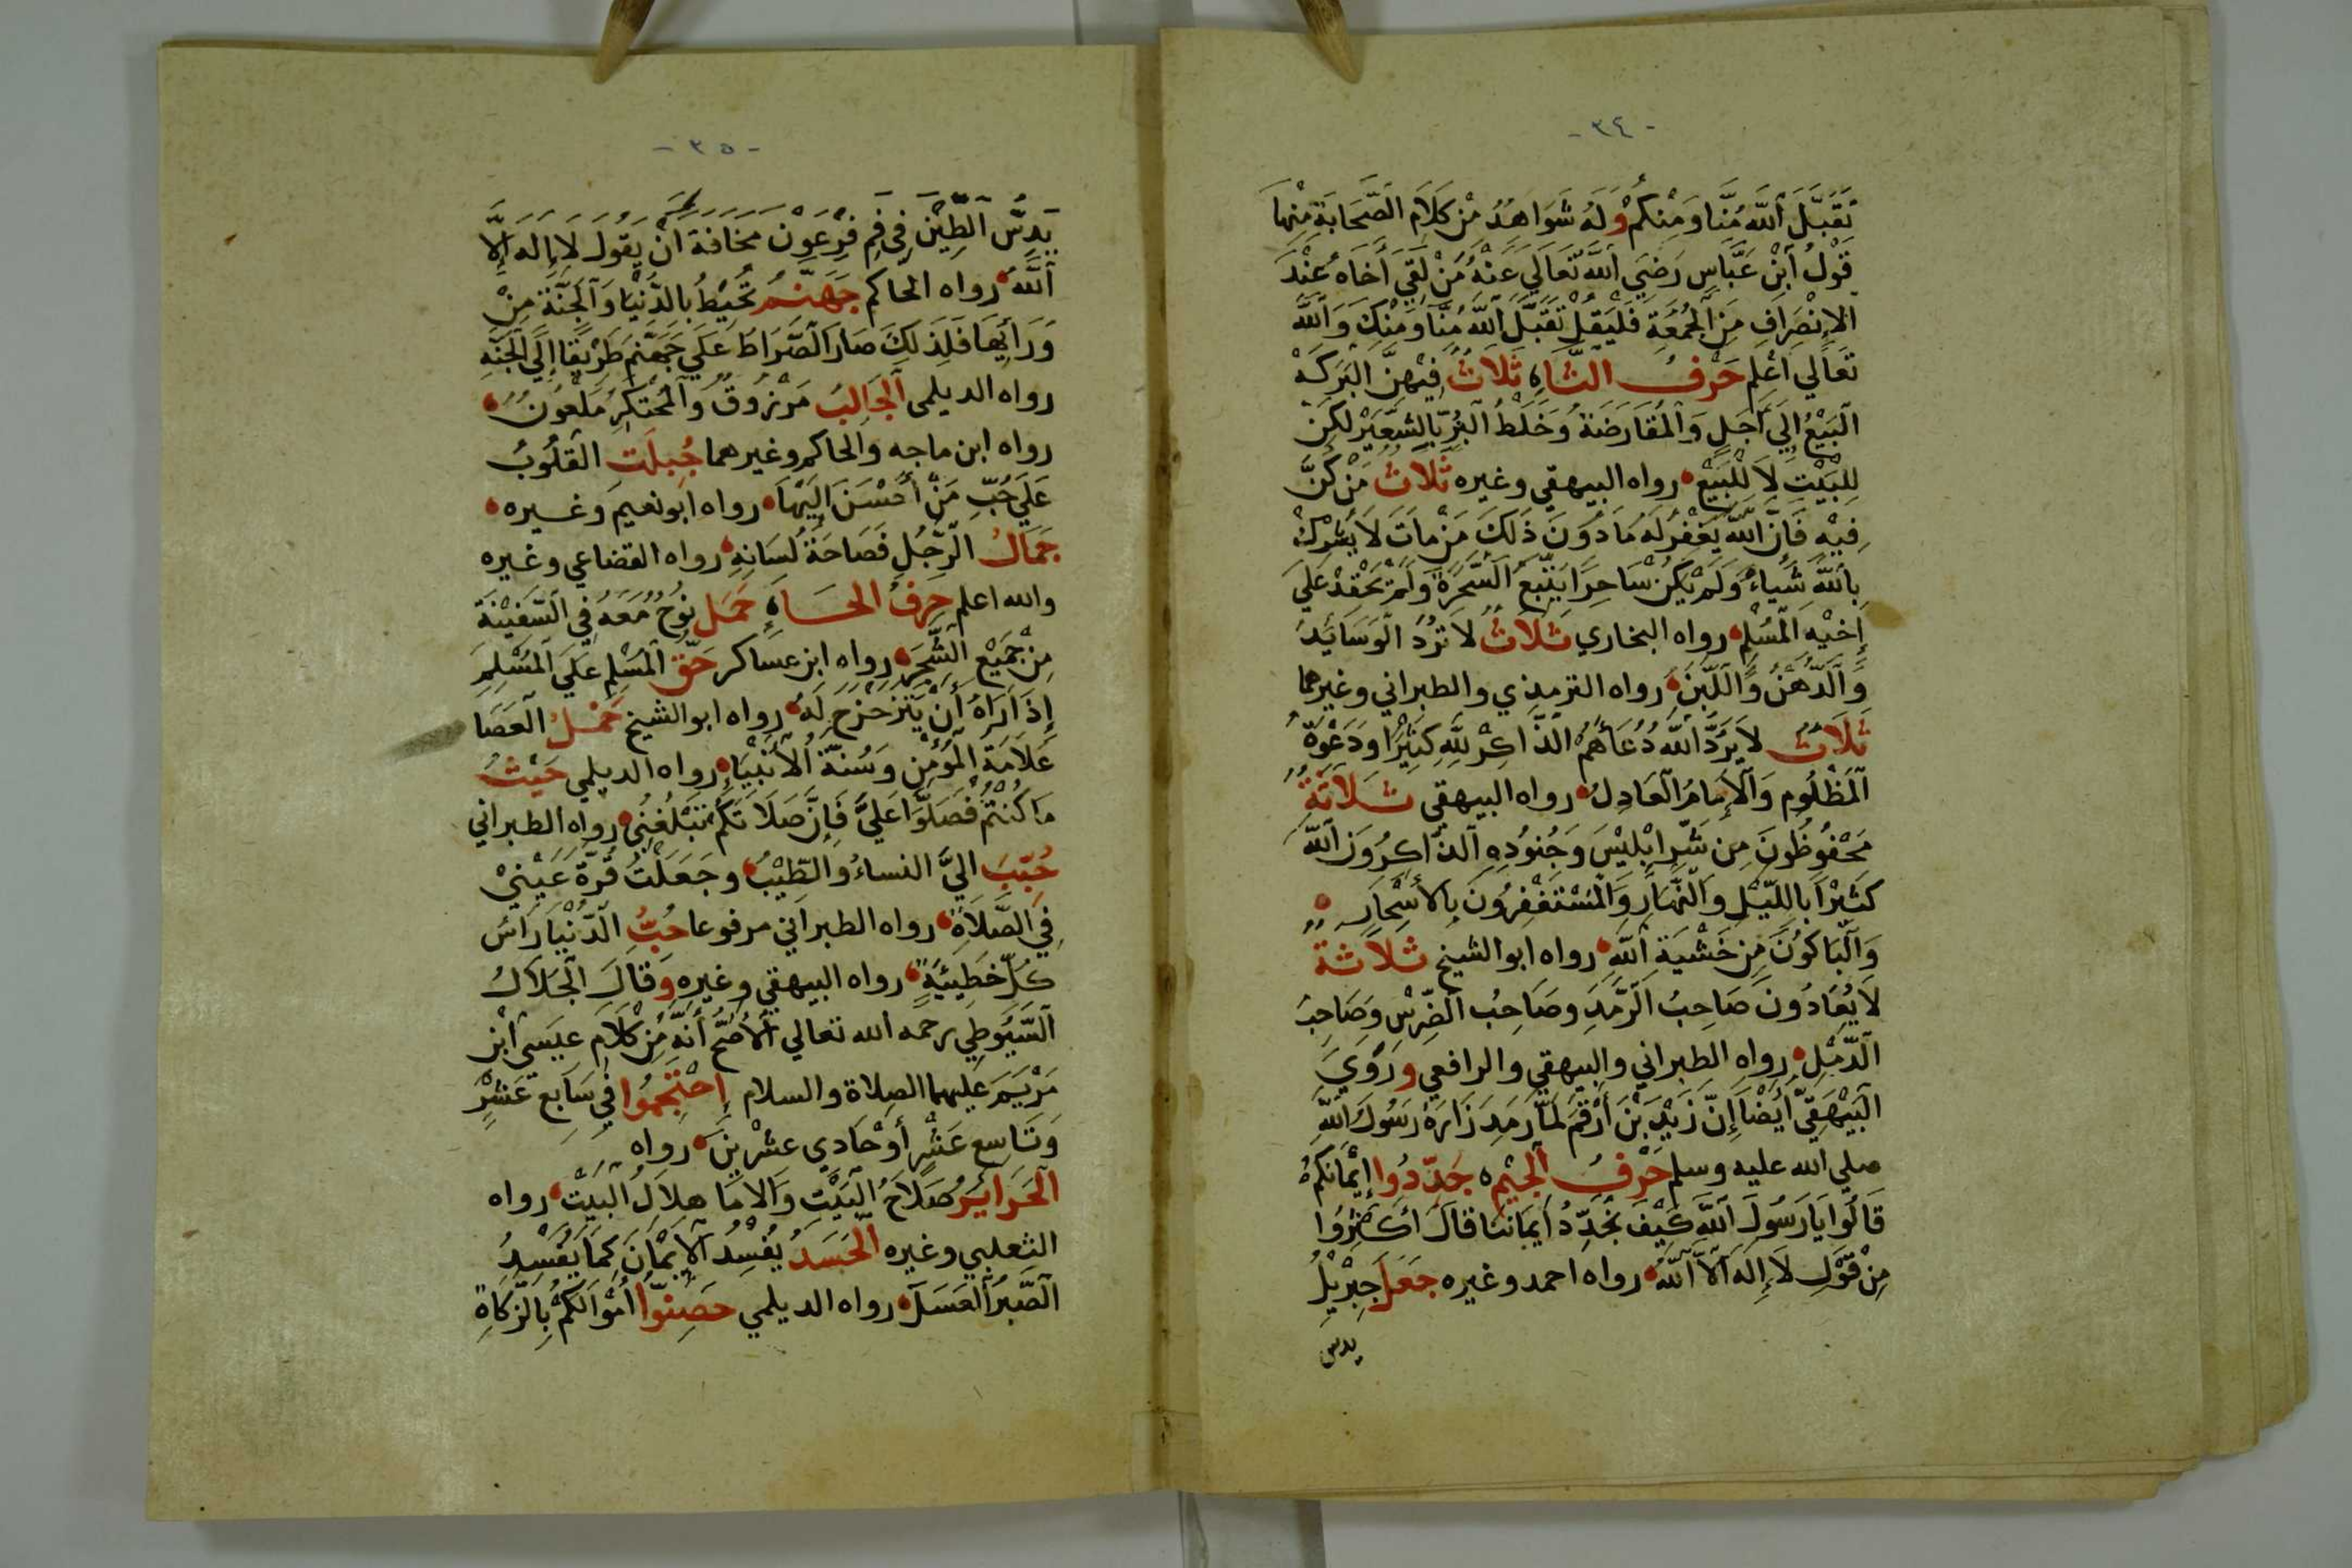 -٣٤-
تَقَبَّلَ اللَّه مُنَّا وَمِنْكُمْ وَلَهُ شَوَاهِدُ مْنْ كَلَامِ الصَّحَابَةِ مِنْهَا
قَوْلُ ابْنِ عَبَّاسٍ رَضِيَ اللَّهُ تَعَالَي عَنْهُ مَنْ لَقِيَ أَخَاهُ عِنْدَ
الاِنْصِرَافِ مِنَ الجُمُعَةِ فَلْيَقُلْ تَقَبَّلَ اللَّهُ مُنَّا وَمِنْكَ وَاللَّه
تَعَالَي اعْلَم حَرْفُ الثَّاءِ ثَلَاثُ فِيْهِنَّ البَرَكَه
البَيْعُ إِلَي أَجَلٍ وَالمُقَارَضَةُ وَخَلْطُ البُرِّ بِالشَّعِيْرِ لكِنْ
لِلْبَيْتِ لاَ لِلْبَيْعِ رواه البيهقي وغيره ثَلَاثُ مَنْ كُنَّ
فِيْهِ فَاِنَّ اللَّهَ يَغْفِرُ لَهُ مَا دُونَ ذَلِكَ مَنْ مَاتَ لَا يُشْرِكْ
بِاللَّهِ شَيْاءً وَلَمْ يَكُنْ سَاحِرًا يَتْبَعُ السَّحَرَةَ وَلَمْ يَحْقِدْ عَلَي
اِخيْهِ المُسْلِمِ رواه البخاري ثَلَاثُ لَا تُرَدُ الوَسَائِدُ
وَالدُّهْنُ وَاللَّبَنُ رواه الترمذي والطبراني وغيرهما
ثَلَاثُ لَا يَرُدُّ اللَّه دُعَاءَهُمُ الذَّاكِرْ لِلَّهِ كَثِيْرًا وَدَعْوَةُ
المَظْلُومِ وَالاِمَامُ العَادِلُ رواه البيهقي ثَلَاثَةُ
مَحْفُوظُونَ مِن شَرِّ ابْلِيْسَ وَجُنُودِهِ الذَّاكِرُونَ اللَّه
كَثِيْرًا بِاللَّيْلِ وَالنَّهَارِ وَالمُسْتَغْفِرُونَ بِالأَسْحَارِ
وَالبَاكُونَ مِنْ خَشْيَةِ اللَّهِ رواه ابو الشيخ ثلاثة
لَا يُعَادُونَ صَاحِبُ الرَّمَدِ وصَاحِبُ الضِّرْسِ وَصَاحِبُ
الدُّمْلِ رواه الطبراني والبيهقي والرافعي ورَوَيَ
البَيْهَقِيّ أَيْضًا إِنَّ زَيْدَ بْنَ أَرْقَمَ لَمَّا رَمِدَ زَارَهُ رَسُولُ اللَّهِ
صلي الله عليه وسلم حَرْفُ الجْيمِ جَدِّدُوا إِيْمَانَكُمُ
قَالُوا يَا رَسُولَ اللَّهِ كَيْفَ نُجَدِّدُ أيمَانَنَا قَالَ أَكْثِرُوا
مِنْ قَوْلِ لَا إِلَهَ اِلاَّ اللَّهُ رواه احمد وغيره جَعَلَ جِبْرِيْلُ
يدس
-٣٥-
يَدُسُّ الطِّيْنَ فِي فَمِ فِرْعَوْن مَخَافَةَ أَنْ يَقُولَ لَا إِله إِلَّا
اللَّهُ رواه الحاكم جَهَنَّمُ تُحِيْطُ بِالدُّنْيَا وَالجَنَّةُ مِنْ
وَرَائِهَا فَلِذَلِكَ صَارَ الصِّرَاطُ عَلَي جَهَنَّمَ طَرِيْقًا إِلَي الجَنَّهِ
رواه الديلمي الجَالِبُ مَرْزُوقٌ وَالمُحْتَكِرُ مَلْعُونٌ
رواه ابن ماجه والحاكم وغيرهما جُبِلَتِ القُلُوبُ
عَلَي حُبِّ مَنْ أَحْسَنَ اِلَيْهَا رواه ابو نعيم وغيره
جَمَالُ الرَّجُلِ فَصَاحَةُ لِسَانِهِ رواه القضاعي وغيره
والله اعلم حرفُ الحَاءِ حَمَل نُوحُ مَعَهُ فِي السَّفِيْنَةِ
مِنْ جَمِيْعِ الشَّجَرِ رواه ابن عساكر حَقُّ المُسْلِمِ عَلَي المُسْلِمِ
إِذَا رَاهُ أَنْ يَتَزَحْزَحَ لَهُ رواه ابو الشيخ حَمْلُ العَصَا
عَلَامَةُ المُؤْمِنِ وَسُنَّةُ الأَنْبِيَاءِ رواه الديلمي حَيْثُ
مَا كُنْتُمْ فَصَلُّوا عَلَيَّ فَاِنَّ صَلَاتَكُمْ تَبْلُغُنِي رواه الطبراني
حُبِّبَ اليَّ النساءُ وَالطِّيْبُ وجَعَلَتُ قُرَّةُ عَيْنِيْ
فِي الصَّلَاةِ رواه الطبراني مرفوعا حُبُّ الدُّنْيَا رَاسُ
كُلِّ خَطِيْئَةٍ رواه البيهقي وغيره وَقَالَ الجَلَالُ
السَّيُوطِي رحمه الله تعالي الأَصَحُّ أَنَّهُ مِنْ كَلَامِ عِيسَى ابْنِ
مَرْيَمَ عليهما الصلاة والسلام اِحْتَجِمُوا فِي سَابِعَ عَشْرِ
وَتَاسِعِ عَشْرٍ أَوْ حَادِي عشْرِيْنَ رواه
الحَرَائِرُ صَلَاحُ البَيْتِ وَالامَا هلاَلُ البَيْتِ رواه
الثعلبي وغيره الحَسَدُ يُفْسِدُ الاِيْمَانَ كَمَا يُفْسِدُ
الصَّبْرُ العَسَلَ رواه الديلمي حَصِّنُوا أَمْوَالَكُمْ بِالزَّكَاةِ